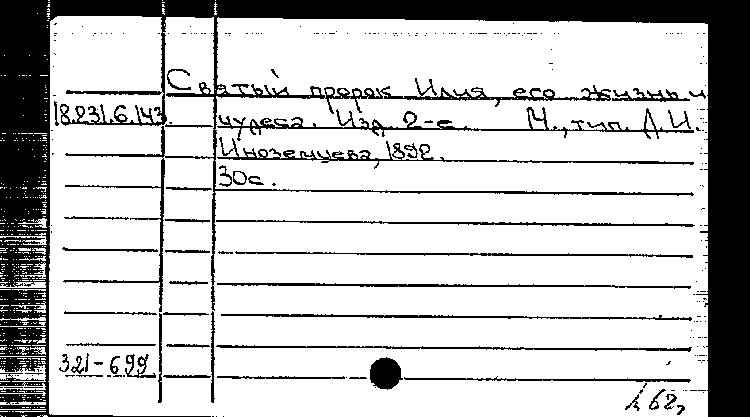 Святый пророк Илия, его жизнь и
18.231.6.143. чудеса. Изд. 2-е. М., тип. Д.И.
Иноземцева, 1892.
30с.
321-699